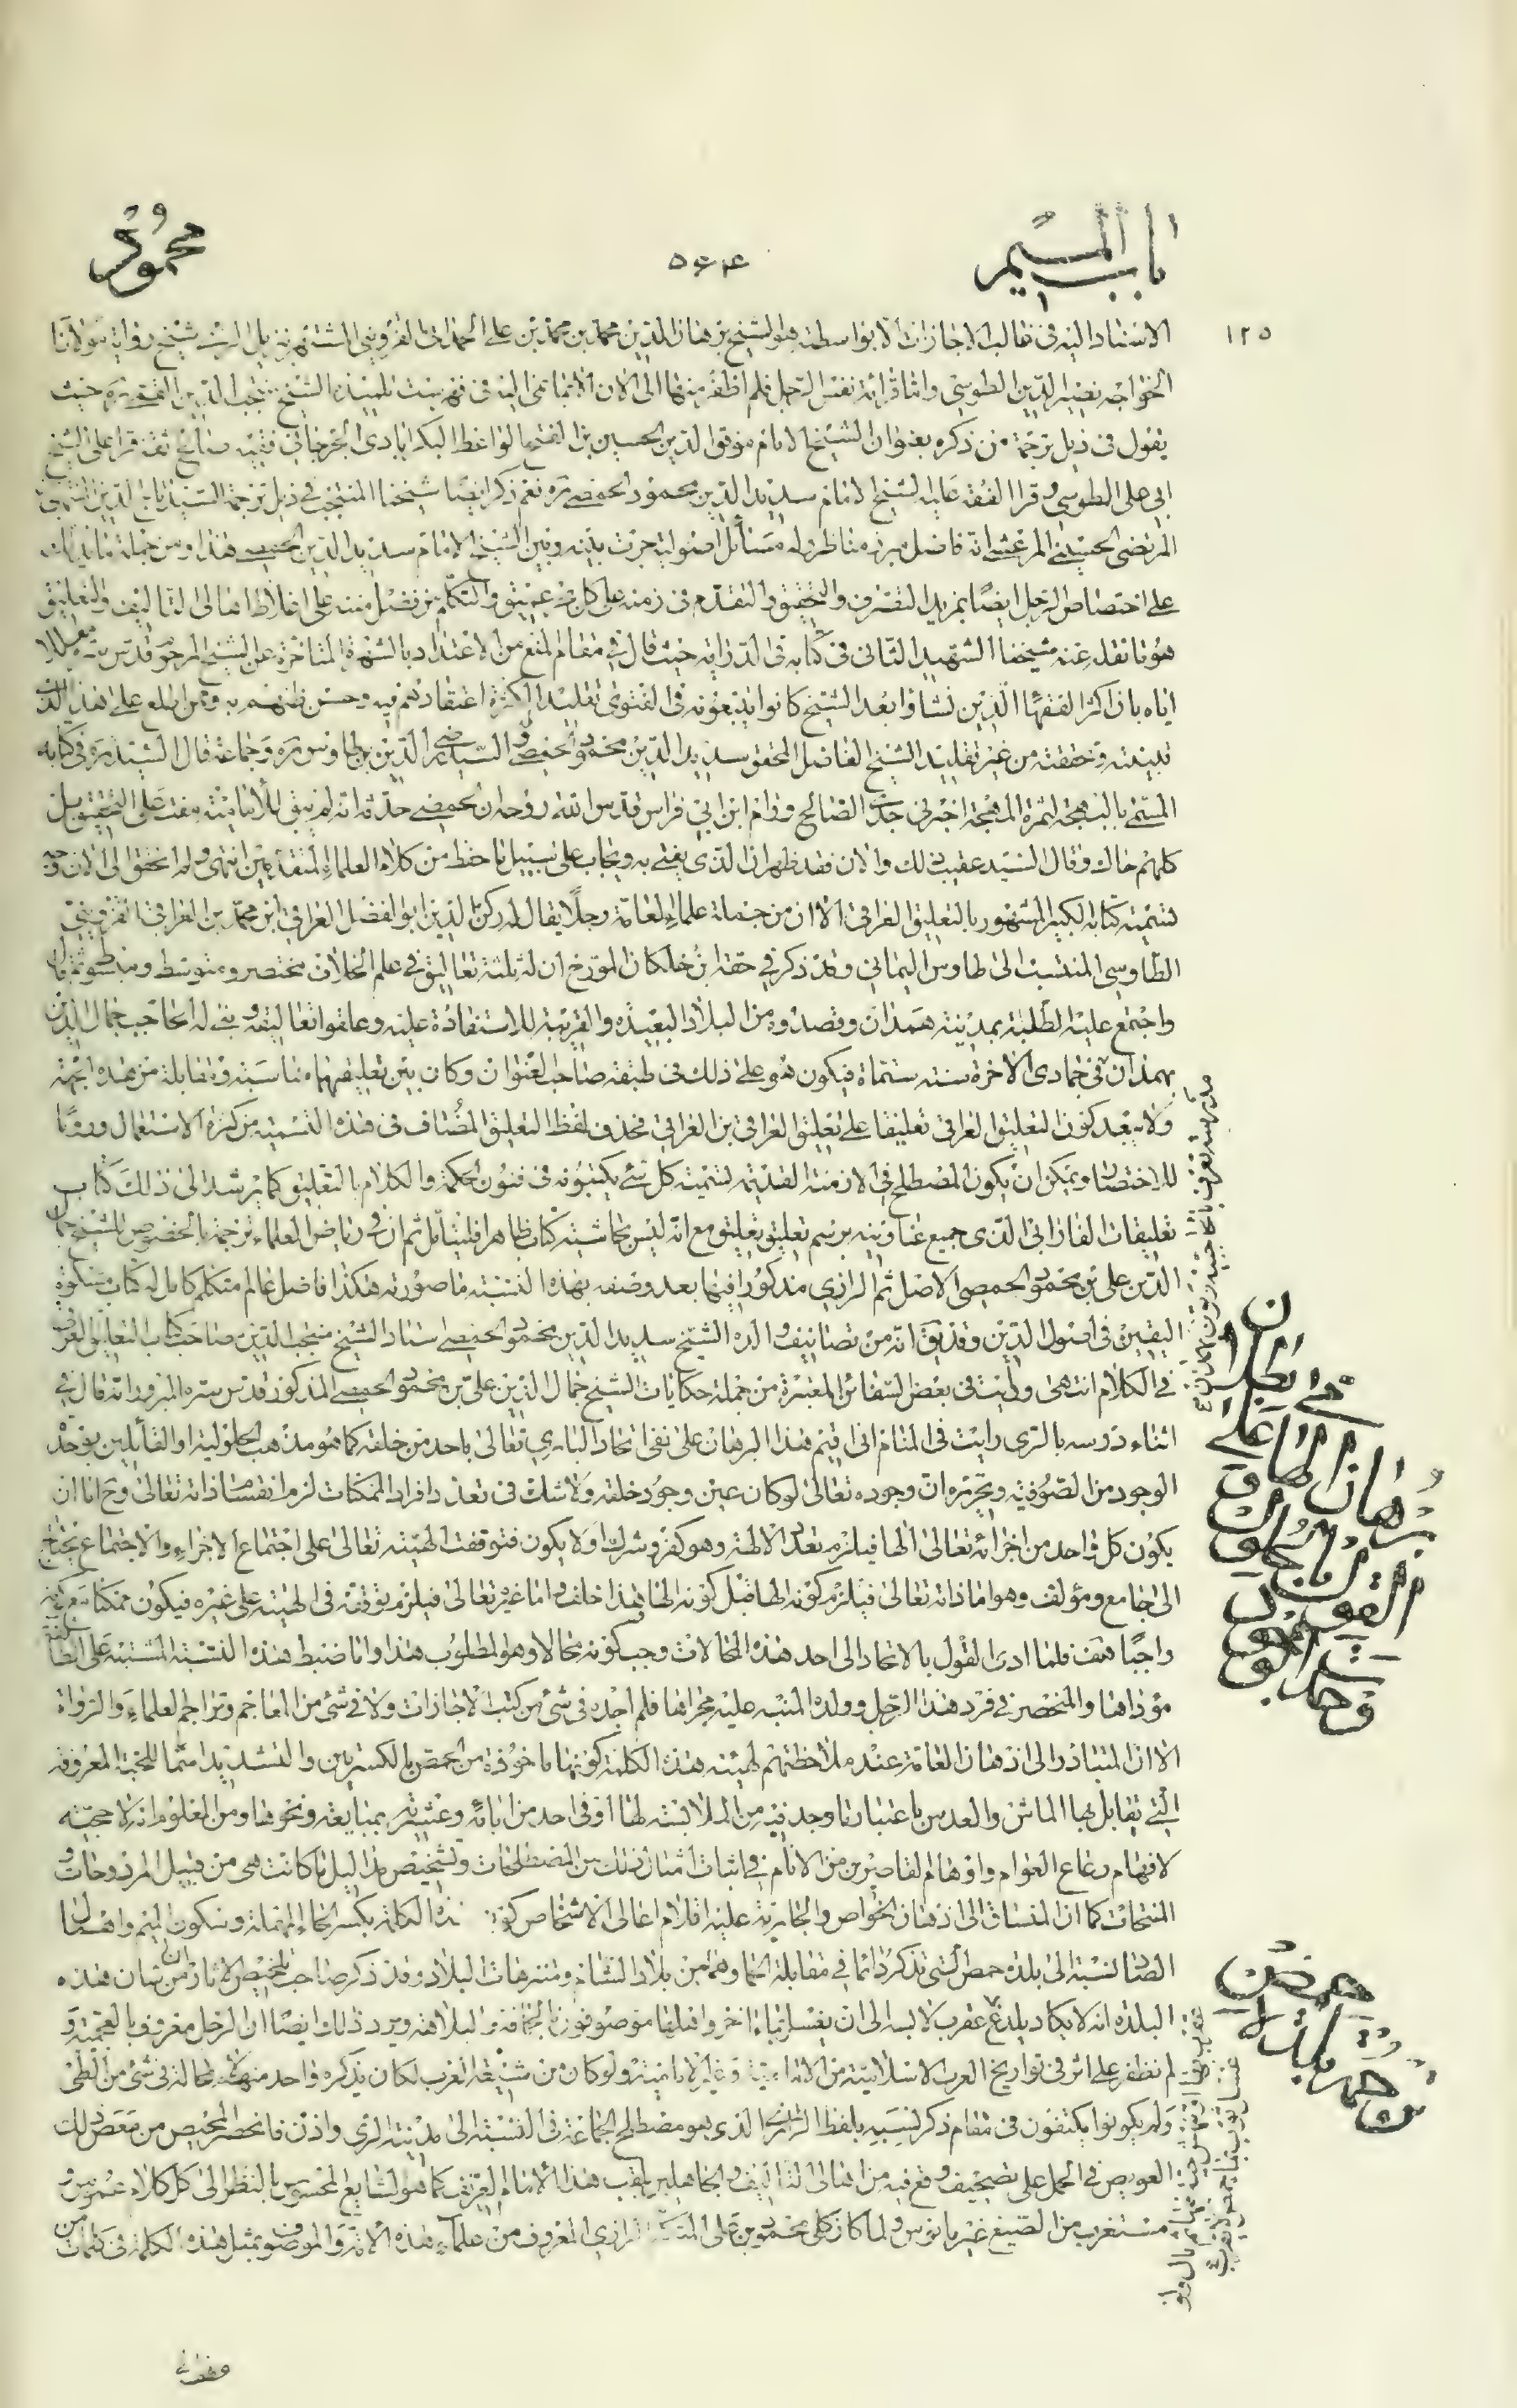 باب الميم
٥٦٤
محمود
١٢٥
الاسناد اليه فى غالب الاجازات الا بواسطة هو الشيخ برهان الدين محمد بن محمد بن على الحمدانى القزوينى المشتهر نزيل الرى شيخ رواية مولانا
الخواجه نصير الدين الطوسى واما قرائة نفس الرجل فلم اظفر منها الى الان الا بما نمى اليه فى فهرست تلميذه الشيخ منتجب الدين القمى ره حيث
يقول فى ذيل ترجمة من ذكره بعنوان الشيخ الامام موفق الدين الحسين بن الفتح الواعظ البكرابادى الجرجانى فقيه صالح ثقة قرا على الشيخ
ابى على الطوسى وقرا الفقه عليه الشيخ الامام سديد الدين محمود الحمصى ره نعم ذكر ايضا شيخنا المنتجب فى ذيل ترجمة السيد تاج الدين المنتهى بن
المرتضى الحسينى المرعشى انه فاضل مبرز مناظر وله مسائل اصولية جرت بينه وبين الشيخ الامام سديد الدين الحمصى هذا ومن جملة ما يدلك
على اختصاص الرجل ايضا بمزيد التصرف والتحقيق والتقدم فى زمنه على كل خبر عميق والتكلم بفضل منه على اغلاط اهالى التاليف والتعليق
هو ما نقله عنه شيخنا الشهيد الثانى فى كتابه فى الدراية حيث قال فى مقام المنع من الاعتداد بالشهرة المتاخرة عن الشيخ المرحوم قدس سره معللا
اياه بان اكثر الفقهاء الذين نشاوا بعد الشيخ كانوا يتبعونه فى الفتوى تقليدا له لكثرة اعتقادهم فيه وحسن ظنهم به وممن اطلع على هذا الذى
تبينته وحققته من غير تقليد الشيخ الفاضل المحقق سديد الدين محمود الحمصى والسيد رضى الدين بن طاوس ره وجماعة قال السيد ره فى كتابه
المسمى بالبهجة لثمرة المهجة اخبرنى جدى الصالح ورام ابن ابى فراس قدس الله روحه ان الحمصى حدثه انه لم يبق للامامية مفت على التحقيق بل
كلهم حاك وقال السيد عقيب ذلك والان فقد ظهر ان الذى يفتى به ويجاب على سبيل ما حفظ من كلام العلماء المتقدمين انتهى ولم اتحقق الى الان وجه
تسمية كتابه الكبير المشهور بالتعليق العراقى الا ان من جملة علماء العامة رجلا يقال له ركن الدين ابو الفضل العراقى ابن محمد بن العراقى القزوينى
الطاوسى المنتسب الى طاوس اليمانى وقد ذكر فى حقه ابن خلكان المورخ ان له ثلثة تعاليق فى علم الخلاف مختصر ومتوسط ومبسوط ثم قال
واجتمع عليه الطلبة بمدينة همدان وقصدوه من البلاد البعيدة والقريبة للاستفادة عليه وعلقوا تعاليقه وبنى له الحاجب جمال الدين
بهمدان فى جمادى الاخرة سنة ستماة فيكون هو على ذلك فى طبقة صاحب العنوان وكان بين تعليقهما مناسبة ومقابلة من هذه الجهة
ولا يبعد كون التعليق العراقى تعليقا على تعليق العراقى بن العراقى فحذف لفظ التعليق المضاف فى هذه التسمية من كثرة الاستعمال وروما
للاختصار ويمكن ان يكون المصطلح فى الازمنة القديمة تسمية كل شئ يكتبونه فى فنون الحكمة والكلام بالتعليق كما يرشد الى ذلك كتاب
تعليقات الفارابى الذى جميع عناوينه برسم تعليق تعليق مع انه ليس بحاشية كتاب ظاهر فليتامل ثم ان فى رياض العلماء ترجمة بالخصوص للشيخ جمال
الدين على بن محمود الحمصى الاصل ثم الرازى مذكورا فيها بعد وصفه بهذه النسبة ما صورته هكذا فاضل عالم متكلم كامل له كتاب مشكوة
اليقين فى اصول الدين وقد يق انه من تصانيف والده الشيخ سديد الدين محمود الحمصى استاد الشيخ منتجب الدين صاحب كتاب التعليق العراقى
فى الكلام انتهى ورايت فى بعض السفائن المعتبرة من جملة حكايات الشيخ جمال الدين على بن محمود الحمصى المذكور قدس سره المبرور انه قال فى
اثناء دروسه بالرى رايت فى المنام انى اقيم هذا البرهان على نفى اتحاد البارى تعالى باحد من خلقه كما هو مذهب الحلولية او القائلين بوحدة
الوجود من الصوفية وتحريره ان وجوده تعالى لو كان عين وجود خلقه ولا شك فى تعدد افراد الممكنات لزم انقسام ذاته تعالى وح اما ان
يكون كل واحد من اجزائه تعالى الها فيلزم تعدد الالهة وهو كفر وشرك او لا يكون فتوقفت الهيته تعالى على اجتماع الاجزاء والاجتماع يحتاج
الى جامع ومؤلف وهو اما ذاته تعالى فيلزم كونه الها قبل كونه الها هذا خلف واما غيره تعالى فيلزم توقفه فى الهيته على غيره فيكون ممكنا مع كونه
واجبا هف فلما ادى القول بالاتحاد الى احد هذه المحالات وجب كونه محالا وهو المطلوب هذا واما ضبط هذه النسبة المشتبه على الطائفة
مؤداها والمنحصر فى فرد هذا الرجل وولده المنبه عليه مجراها فلم اجده فى شئ من كتب الاجازات ولا فى شئ من المعاجم وتراجم العلماء والرواة
الا ان المتبادر الى اذهان العامة عند ملاحظتهم لهيئة هذه الكلمة كونها ماخوذة من الحمص بالكسرتين والتشديد اسما للحبة المعروفة
التى يقابل بها الماش والعدس باعتبار ما وجد فيه من الملابسة لها او فى احد من ابائه وعشيرته بمبايعة ونحوها ومن المعلوم انه لا حجية
لافهام رعاع العوام واوهام القاصرين من الانام فى اثبات امثال ذلك من المصطلحات وتشخيص مداليل ما كانت هى من قبيل المردوحات و
المنتحات كما ان المنساق الى اذهان الخواص والجارية عليه اقلام اعالى الاشخاص كون هذه الكلمة بكسر الحاء المهملة وسكون الميم واهمال
الصاد نسبة الى بلدة حمص التى تذكر دائما فى مقابلة الحما وهما من بلاد الشام ومتنزهات البلاد وقد ذكر صاحب تلخيص الاثار ان من شان هذه
البلدة انه لا يكاد يلدغ عقرب لابسه الى ان يغسل بماء اخر واهلها موصوفون بالحماقة والبلاهة ويرد ذلك ايضا ان الرجل معروف بالعجمية و
لم نظفر على اثر فى تواريخ العرب الاسلامية من الامامية وغير الامامية ولو كان من شيعة العرب لكان يذكره واحد منهم لا محالة فى شئ من المطى
ولم يكونوا يكتفون فى مقام ذكر نسبه بلفظ الرازى الذى هو مصطلح الجماعة فى النسبة الى مدينة الرى واذن فانحصر المحيص من معضل ذلك
العويص فى الحمل على تصحيف وقع فيه من اهالى التاليف والجاهلين بلقب هذا الامام العريف كما هو الشايع المحسوس بالنظر الى كل كلام غموس و
مستغرب من الصيغ غير مانوس ولما كان كل محمود بن على المتكلم الرازى المعروف من علماء هذه الامة والموصوف بمثل هذه الكلمة فى كلمات من
برهان الحمصى على ابطال
القول بالحلول
وحدة الوجود